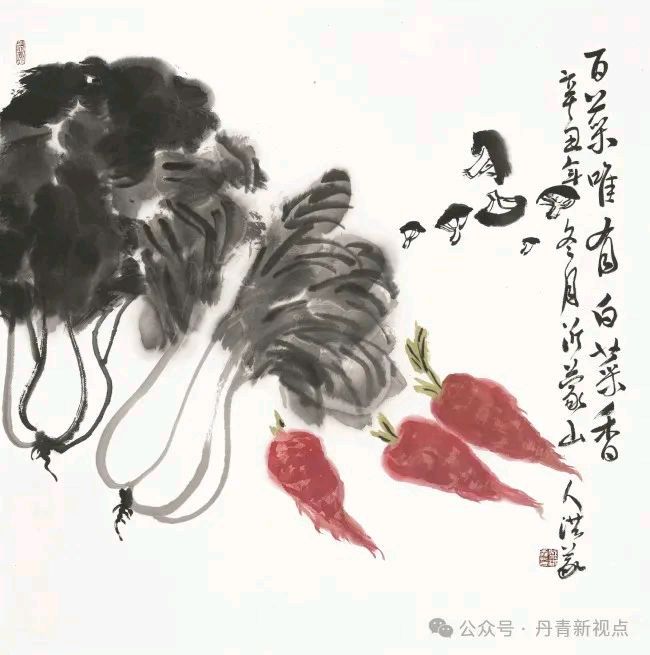 百菜唯有白菜香
辛丑年冬月沂蒙山
人洪義
公众号·丹青新视点